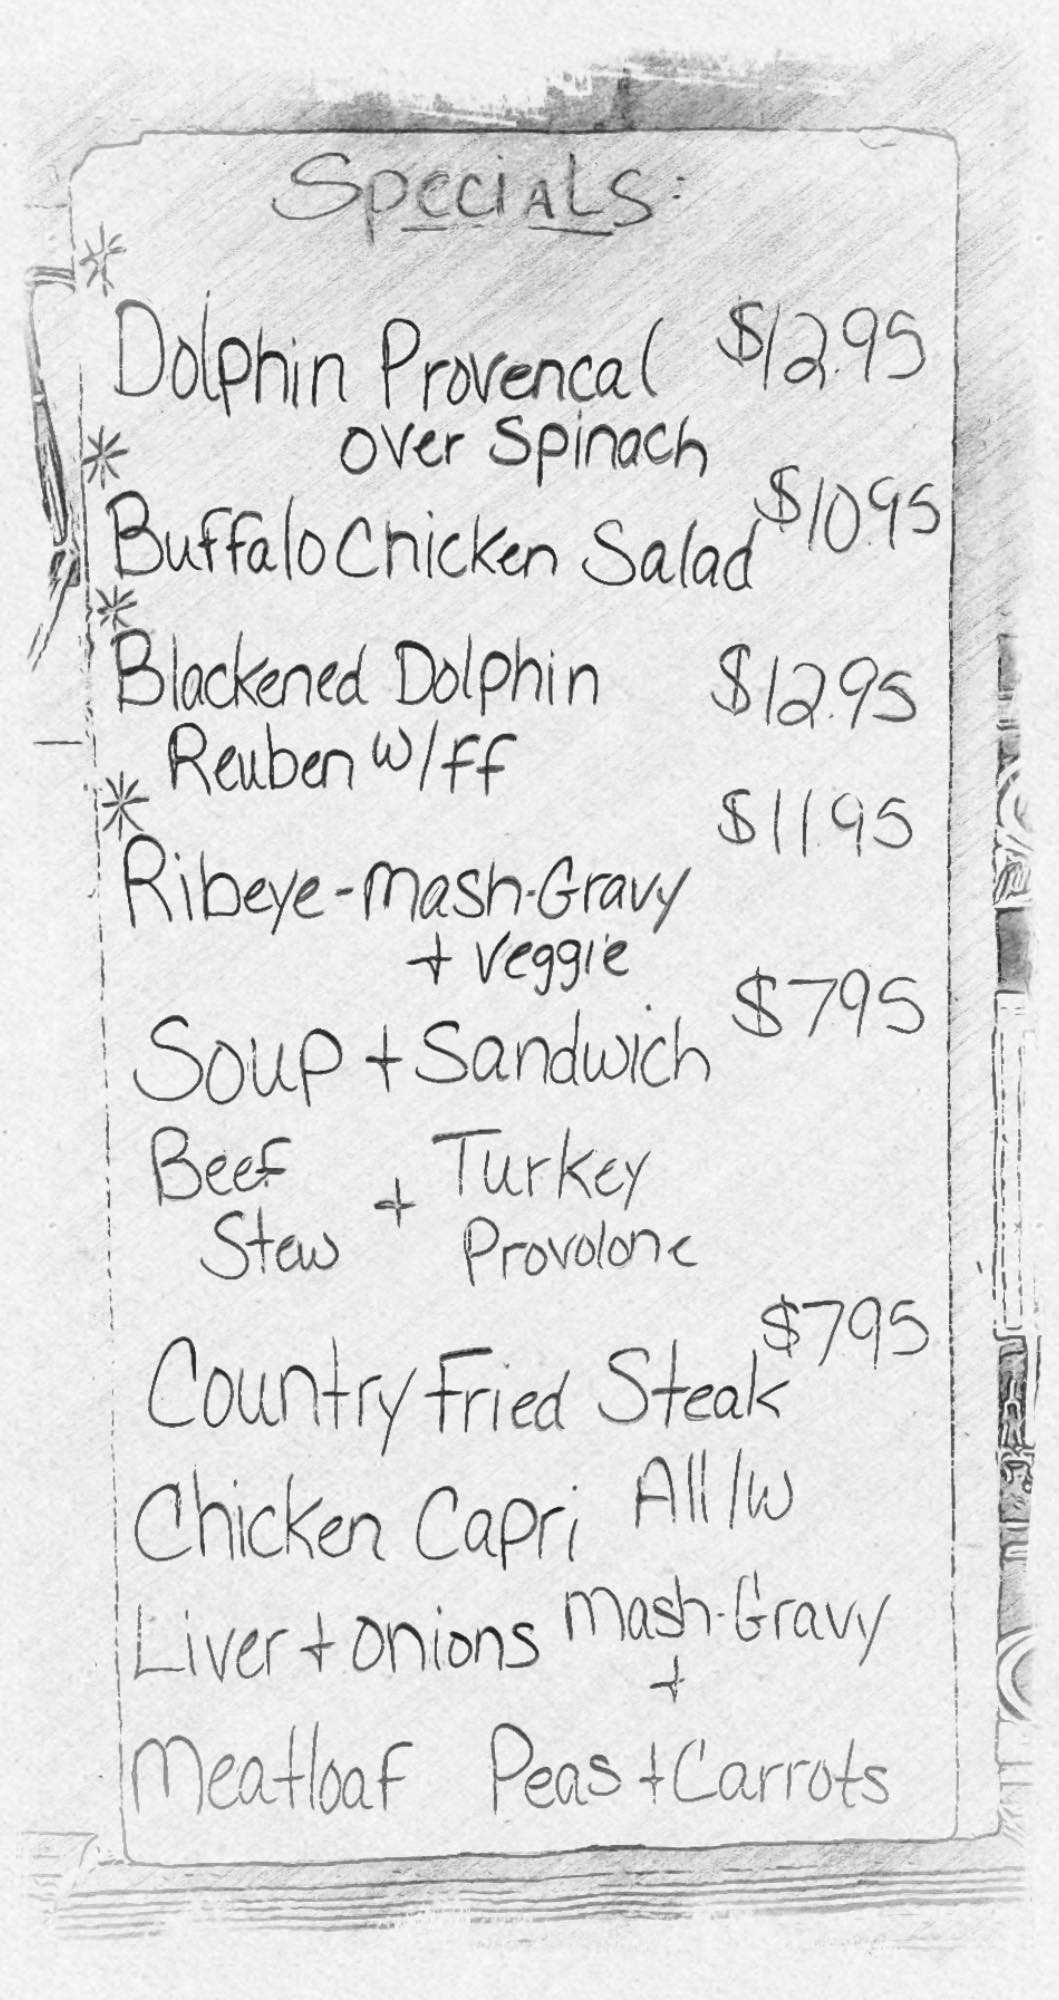 Specials:
* Dolphin Provencal $12.95
over Spinach
* Buffalo Chicken Salad $10.95
* Blackened Dolphin $12.95
Reuben w/ff
* $11.95
Ribeye-Mash-Gravy
+ Veggie
Soup + Sandwich $7.95
Beef + Turkey
Stew Provolone
$7.95
Country Fried Steak
Chicken Capri All/w
Liver + Onions Mash-Gravy
+
Meatloaf Peas + Carrots